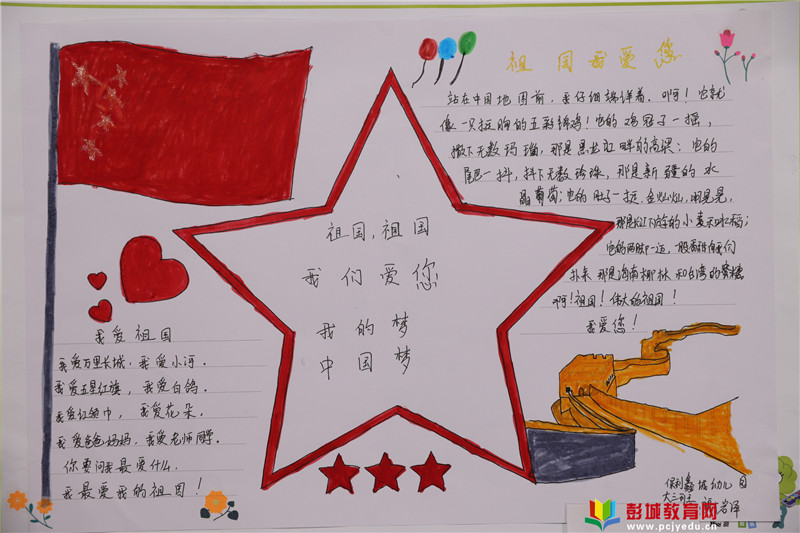 祖国我爱您
站在中国地图前,我仔细端详着.啊!它就
像一只挺胸的五彩锦鸡!它的鸡冠子一摇,
撒下无数玛瑙,那是黑龙江畔的高粱;它的
尾巴一抖,抖下无数珍珠,那是新疆的水
晶葡萄;它的肚子一挺,金灿灿,明晃晃,
那是江南的小麦和水稻;
它的两脚一迈,一股香味向我们
扑来那是海南椰林和台湾的蔗糖
啊!祖国!伟大的祖国!
我爱您!
祖国,祖国
我们爱您
我的梦
中国梦
我爱祖国
我爱万里长城,我爱小河.
我爱五星红旗,我爱白鸽.
我爱红领巾,我爱花朵.
我爱爸爸妈妈,我爱老师同学.
你要问我最爱什么,
我最爱我的祖国!
保利鑫城幼儿园
大三班
彭城教育网
www.pcjyedu.cn